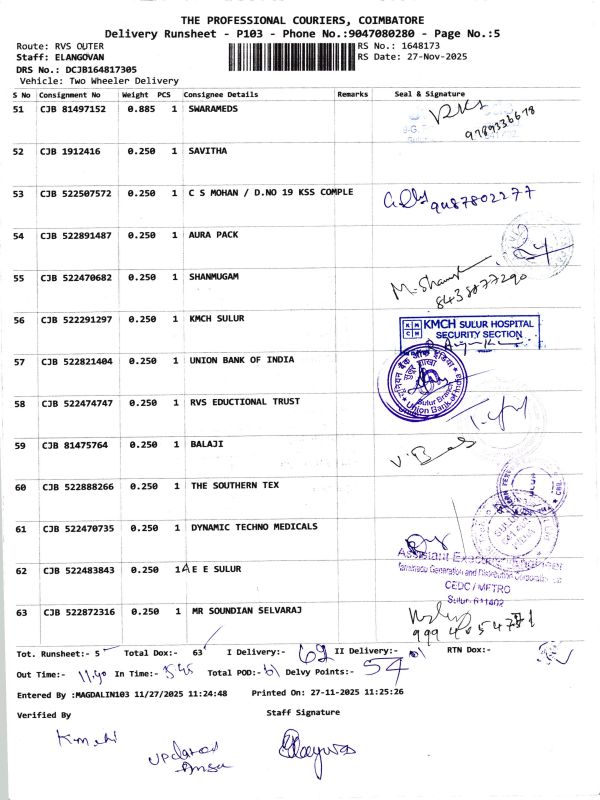 THE PROFESSIONAL COURIERS, COIMBATORE
Delivery Runsheet - P103 - Phone No.:9047080280 - Page No.:5
Route: RVS OUTER
RS No.: 1648173
Staff: ELANGOVAN
RS Date: 27-Nov-2025
DRS No.: DCJB164817305
Vehicle: Two Wheeler Delivery
S No Consignment No Weight PCS Consignee Details Remarks Seal & Signature
51 CJB 81497152 0.885 1 SWARAMEDS
9789336678
52 CJB 1912416 0.250 1 SAVITHA
53 CJB 522507572 0.250 1 C S MOHAN / D.NO 19 KSS COMPLE
9487802277
54 CJB 522891487 0.250 1 AURA PACK
55 CJB 522470682 0.250 1 SHANMUGAM
8438077290
56 CJB 522291297 0.250 1 KMCH SULUR
KMCH SULUR HOSPITAL
SECURITY SECTION
57 CJB 522821404 0.250 1 UNION BANK OF INDIA
यूनियन बैंक ऑफ इंडिया
सुलूर शाखा
Sulur Branch
Union Bank of India
58 CJB 522474747 0.250 1 RVS EDUCTIONAL TRUST
59 CJB 81475764 0.250 1 BALAJI
60 CJB 522888266 0.250 1 THE SOUTHERN TEX
61 CJB 522470735 0.250 1 DYNAMIC TECHNO MEDICALS
62 CJB 522483843 0.250 1 A E E SULUR
Tamilnadu Generation and Distribution Corporation Ltd
CEDC / METRO
Sulur 641402
63 CJB 522872316 0.250 1 MR SOUNDIAN SELVARAJ
Tot. Runsheet:- 5 Total Dox:- 63 I Delivery:- 62 II Delivery:- 01 RTN Dox:-
Out Time:- 11.40 In Time:- 5.45 Total POD:- 61 Delvy Points:- 54
Entered By :MAGDALIN103 11/27/2025 11:24:48 Printed On: 27-11-2025 11:25:26
Verified By Staff Signature
updated